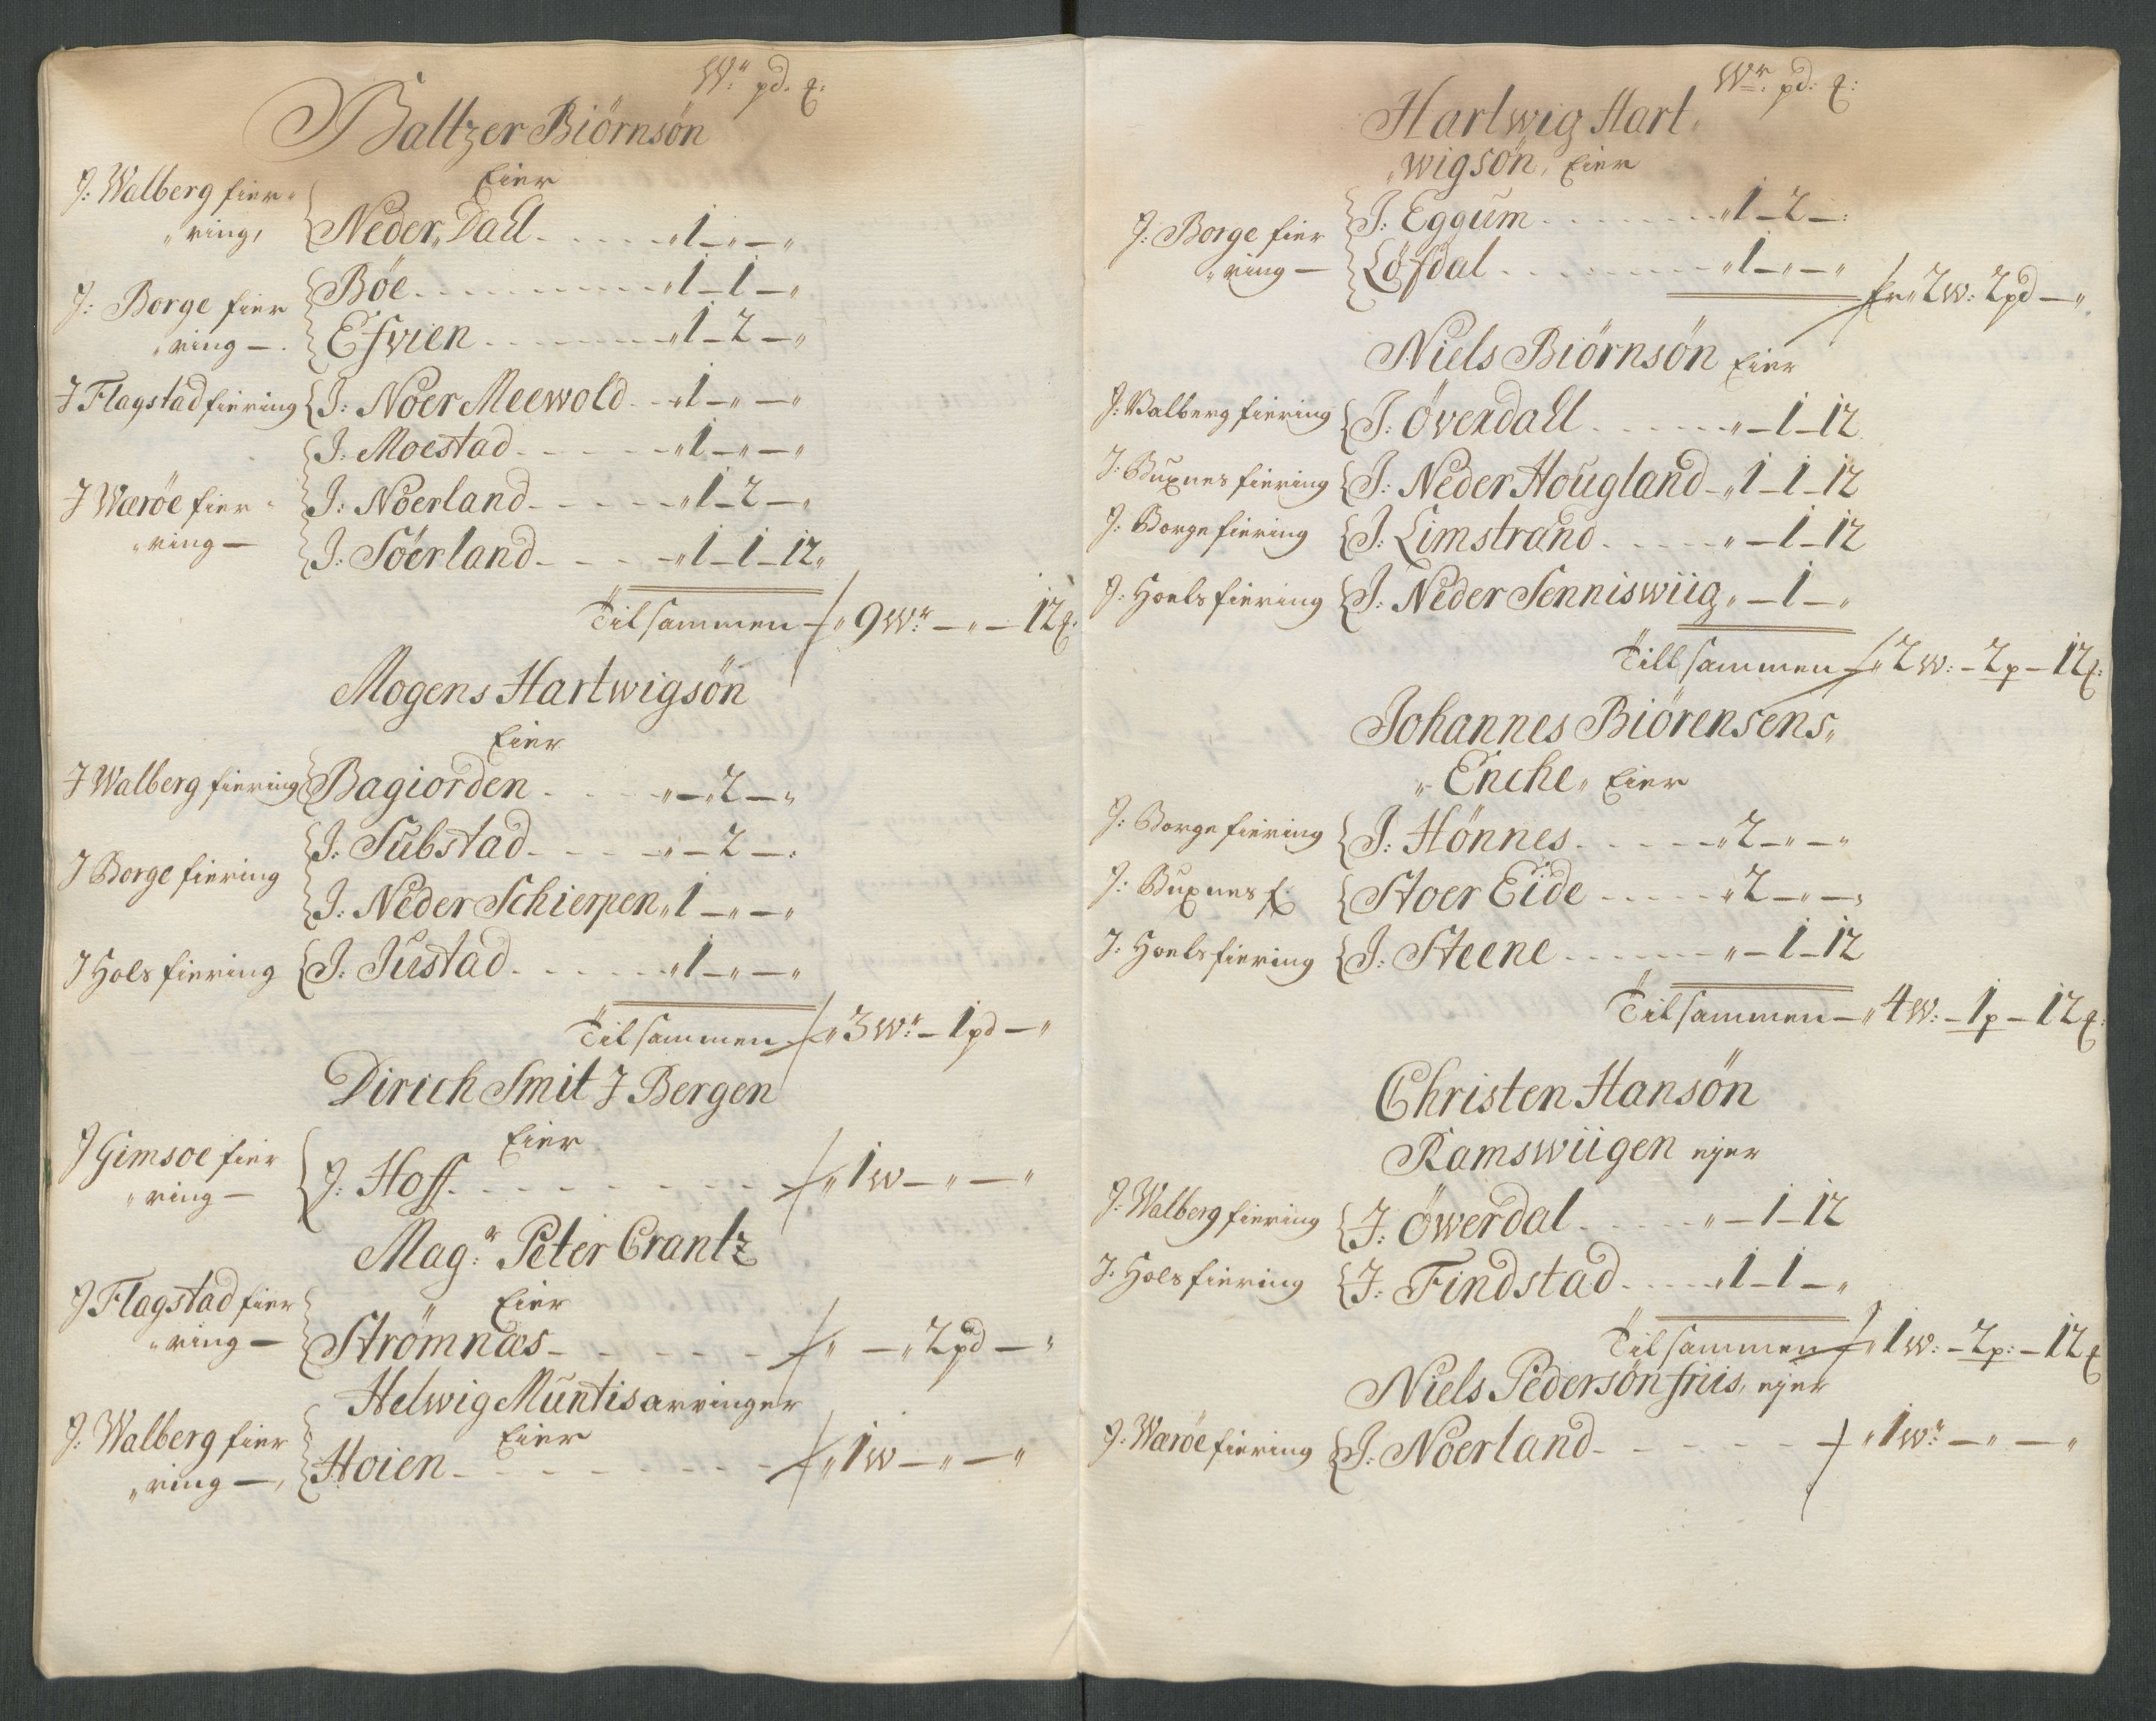 Wr: pd. ℔:
Baltzer Biörnsön
Eier
J: Walberg fier„
„ring, Neder„Dall - - - - - „1 - „ - „
Böe - - - - - - - „1 - 1 - „
J: Borge fier
„ring - Esvien - - - - - - „1 - 2 - „
J Flagstad fiering J: Noer Meewold - - „1 - „ - „
J: Moestad - - - - - „1 - „ - „
J Wæröe fier„ J: Noerland - - - - - „1 - 2 - „
„ring - J: Söerland - - - - „1 - 1 - 12„
Tilsammen - „9 Wr: - „ - 12 ℔:
Mogens Hartwigsön
Eier
J Walberg fiering Bagiorden - - - „ - 2 - „
J: Substad - - - - „ - 2 - :
J Borge fiering
J: Neder Schierpen „1 - „ - „
J Hols fiering J: Justad - - - - - - „1 - „ - „
Tilsammen „3 Wr: - 1 pd - „
Dirich Smit J Bergen
Eier
J Gimsoe fier
„ring - J: Hoff - - - - - - - - „1 w - „ - „
Magr: Peter Crantz
Eier
J Flagstad fier
„ring - Strömnæs - - - - - - „ - „2 pd - „
Helwig Müntis arvinger
Eier
J: Walberg fier
„ring -, Hoien - - - - - - - - „1 w - „ - „
Wr: pd: ℔:
Hartwig Hart„
„wigsön, Eier
J: Borge fier J: Eggum - - - - - - „1 - 2 - :
„ring - Löfdal - - - - - - - „1 - „ - „
er „2 w: 2 pd - „
Niels Biörnsön Eier
J: Valberg fiering J. Överdall - - - - - „ - 1 - 12
J: Buxnes fiering J: Neder Hougland - „1 - 1 - 12
J: Borge fiering J. Limstrand - - - - - „ - 1 - 12
J: Hoels fiering J. Neder Senniswiig „ - 1 - „
Tillsammen - „2 w: - 2 p - 12 ℔:
Johannes Biörensens„
„Enche„ Eier
J: Borge fiering J: Hönnes - - - - - - „2 - „ - „
J: Buxnes f: Stoer Eide - - - - - „2 - „ - „
J: Hoels fiering J. Steene - - - - - - „ - 1 - 12
Tilsammen - „4 w: - 1 p - 12 ℔:
Christen Hansön
Ramswiigen ejer
J: Walberg fiering J: Öwerdal - - - - - „ - 1 - 12
J: Hols fiering J: Findstad - - - - „1 - 1 - „
Tilsammen „1 w: - 2 p: - 12 ℔
Niels Pedersön friis, ejer
J: Wæröe fiering J. Noerland - - - - - - „1 Wr: - „ - „